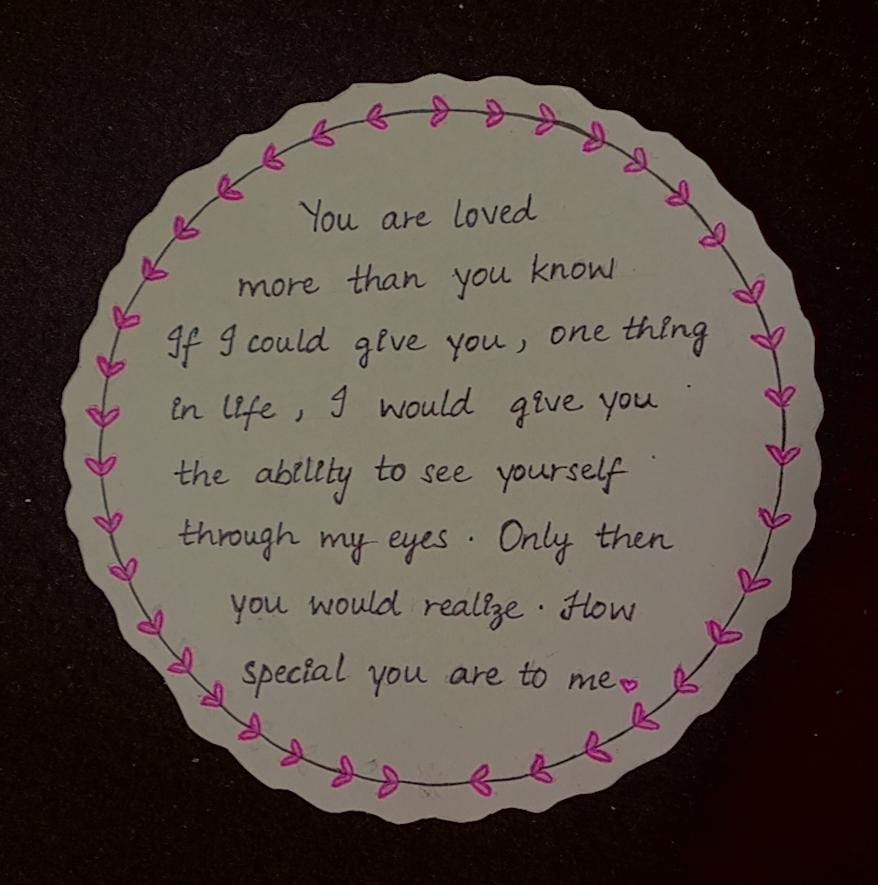 You are loved
more than you know
If I could give you, one thing
in life, I would give you
the ability to see yourself
through my eyes. Only then
you would realize. How
special you are to me